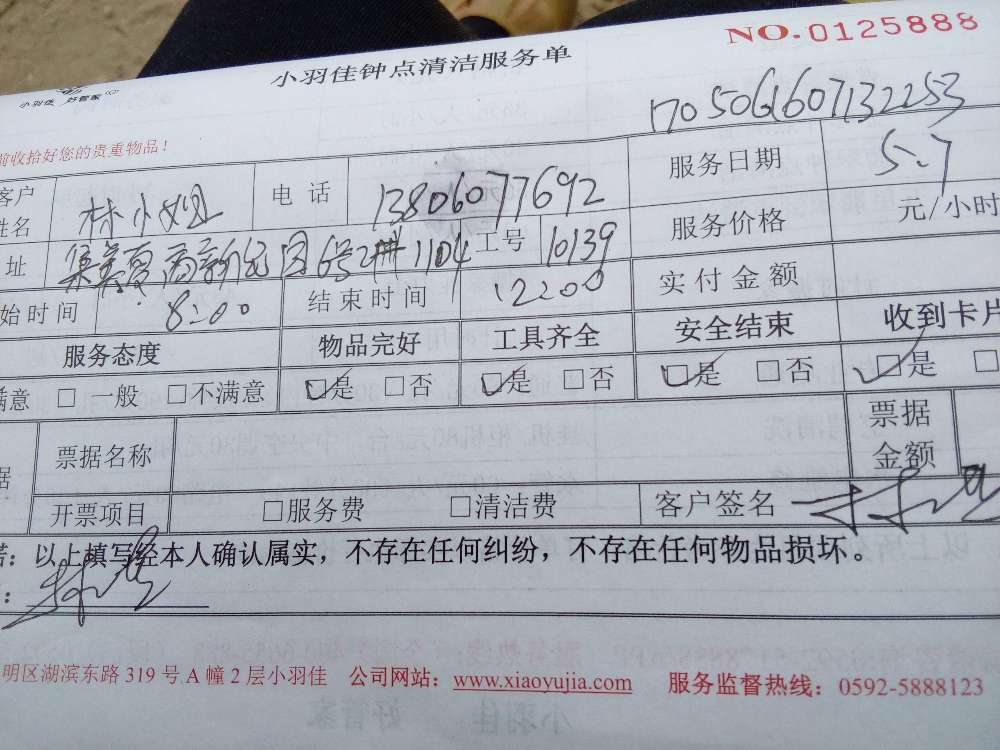 NO.0125888
小羽佳钟点清洁服务单
小羽佳 好管家
1705061607132253
前收拾好您的贵重物品！
客户姓名 林小姐 电话 13806077692 服务日期 5.7
址 集美夏商新纪园6号2梯1104 工号 10139 服务价格 元/小时
始时间 8:00 结束时间 12:00 实付金额
服务态度 物品完好 工具齐全 安全结束 收到卡片
满意 □ 一般 □不满意 ☑是 □否 ☑是 □否 ☑是 □否 ☑是 □
据 票据名称 票据金额
开票项目 □服务费 □清洁费 客户签名
诺：以上填写经本人确认属实，不存在任何纠纷，不存在任何物品损坏。
：
明区湖滨东路 319 号 A 幢 2 层小羽佳 公司网站：www.xiaoyujia.com 服务监督热线：0592-5888123